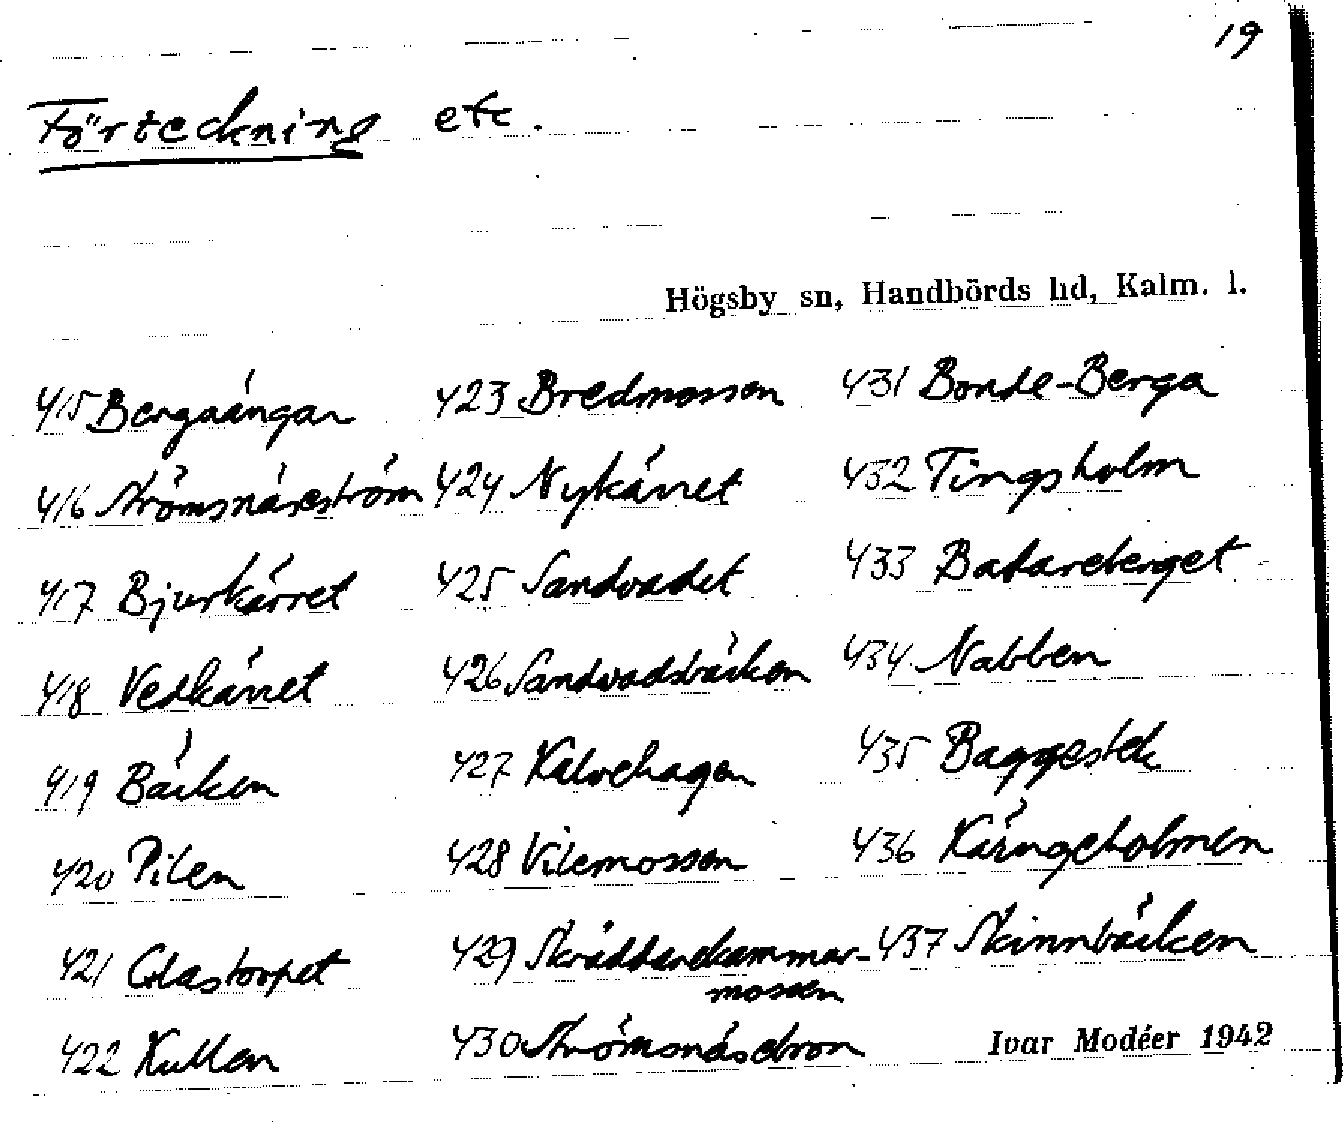 19
Förteckning etc.
Högsby sn, Handbörds hd, Kalm. l.
415 Bergaängar 423 Bredmossen 431 Bonde-Berga
416 Strömsnäseström 424 Nykärret 432 Tingsholm
417 Bjurkärret 425 Sandvadet 433 Badareberget
418 Vedkärret 426 Sandvadsbäcken 434 Nabben
419 Bäcken 427 Kalvehagen 435 Baggestek
420 Pilen 428 Vilemossen 436 Käringeholmen
421 Glastorpet 429 Skräddarekammar- 437 Skinnbäcken
mossen
422 Kullen 430 Strömsnäsebron Ivar Modéer 1942